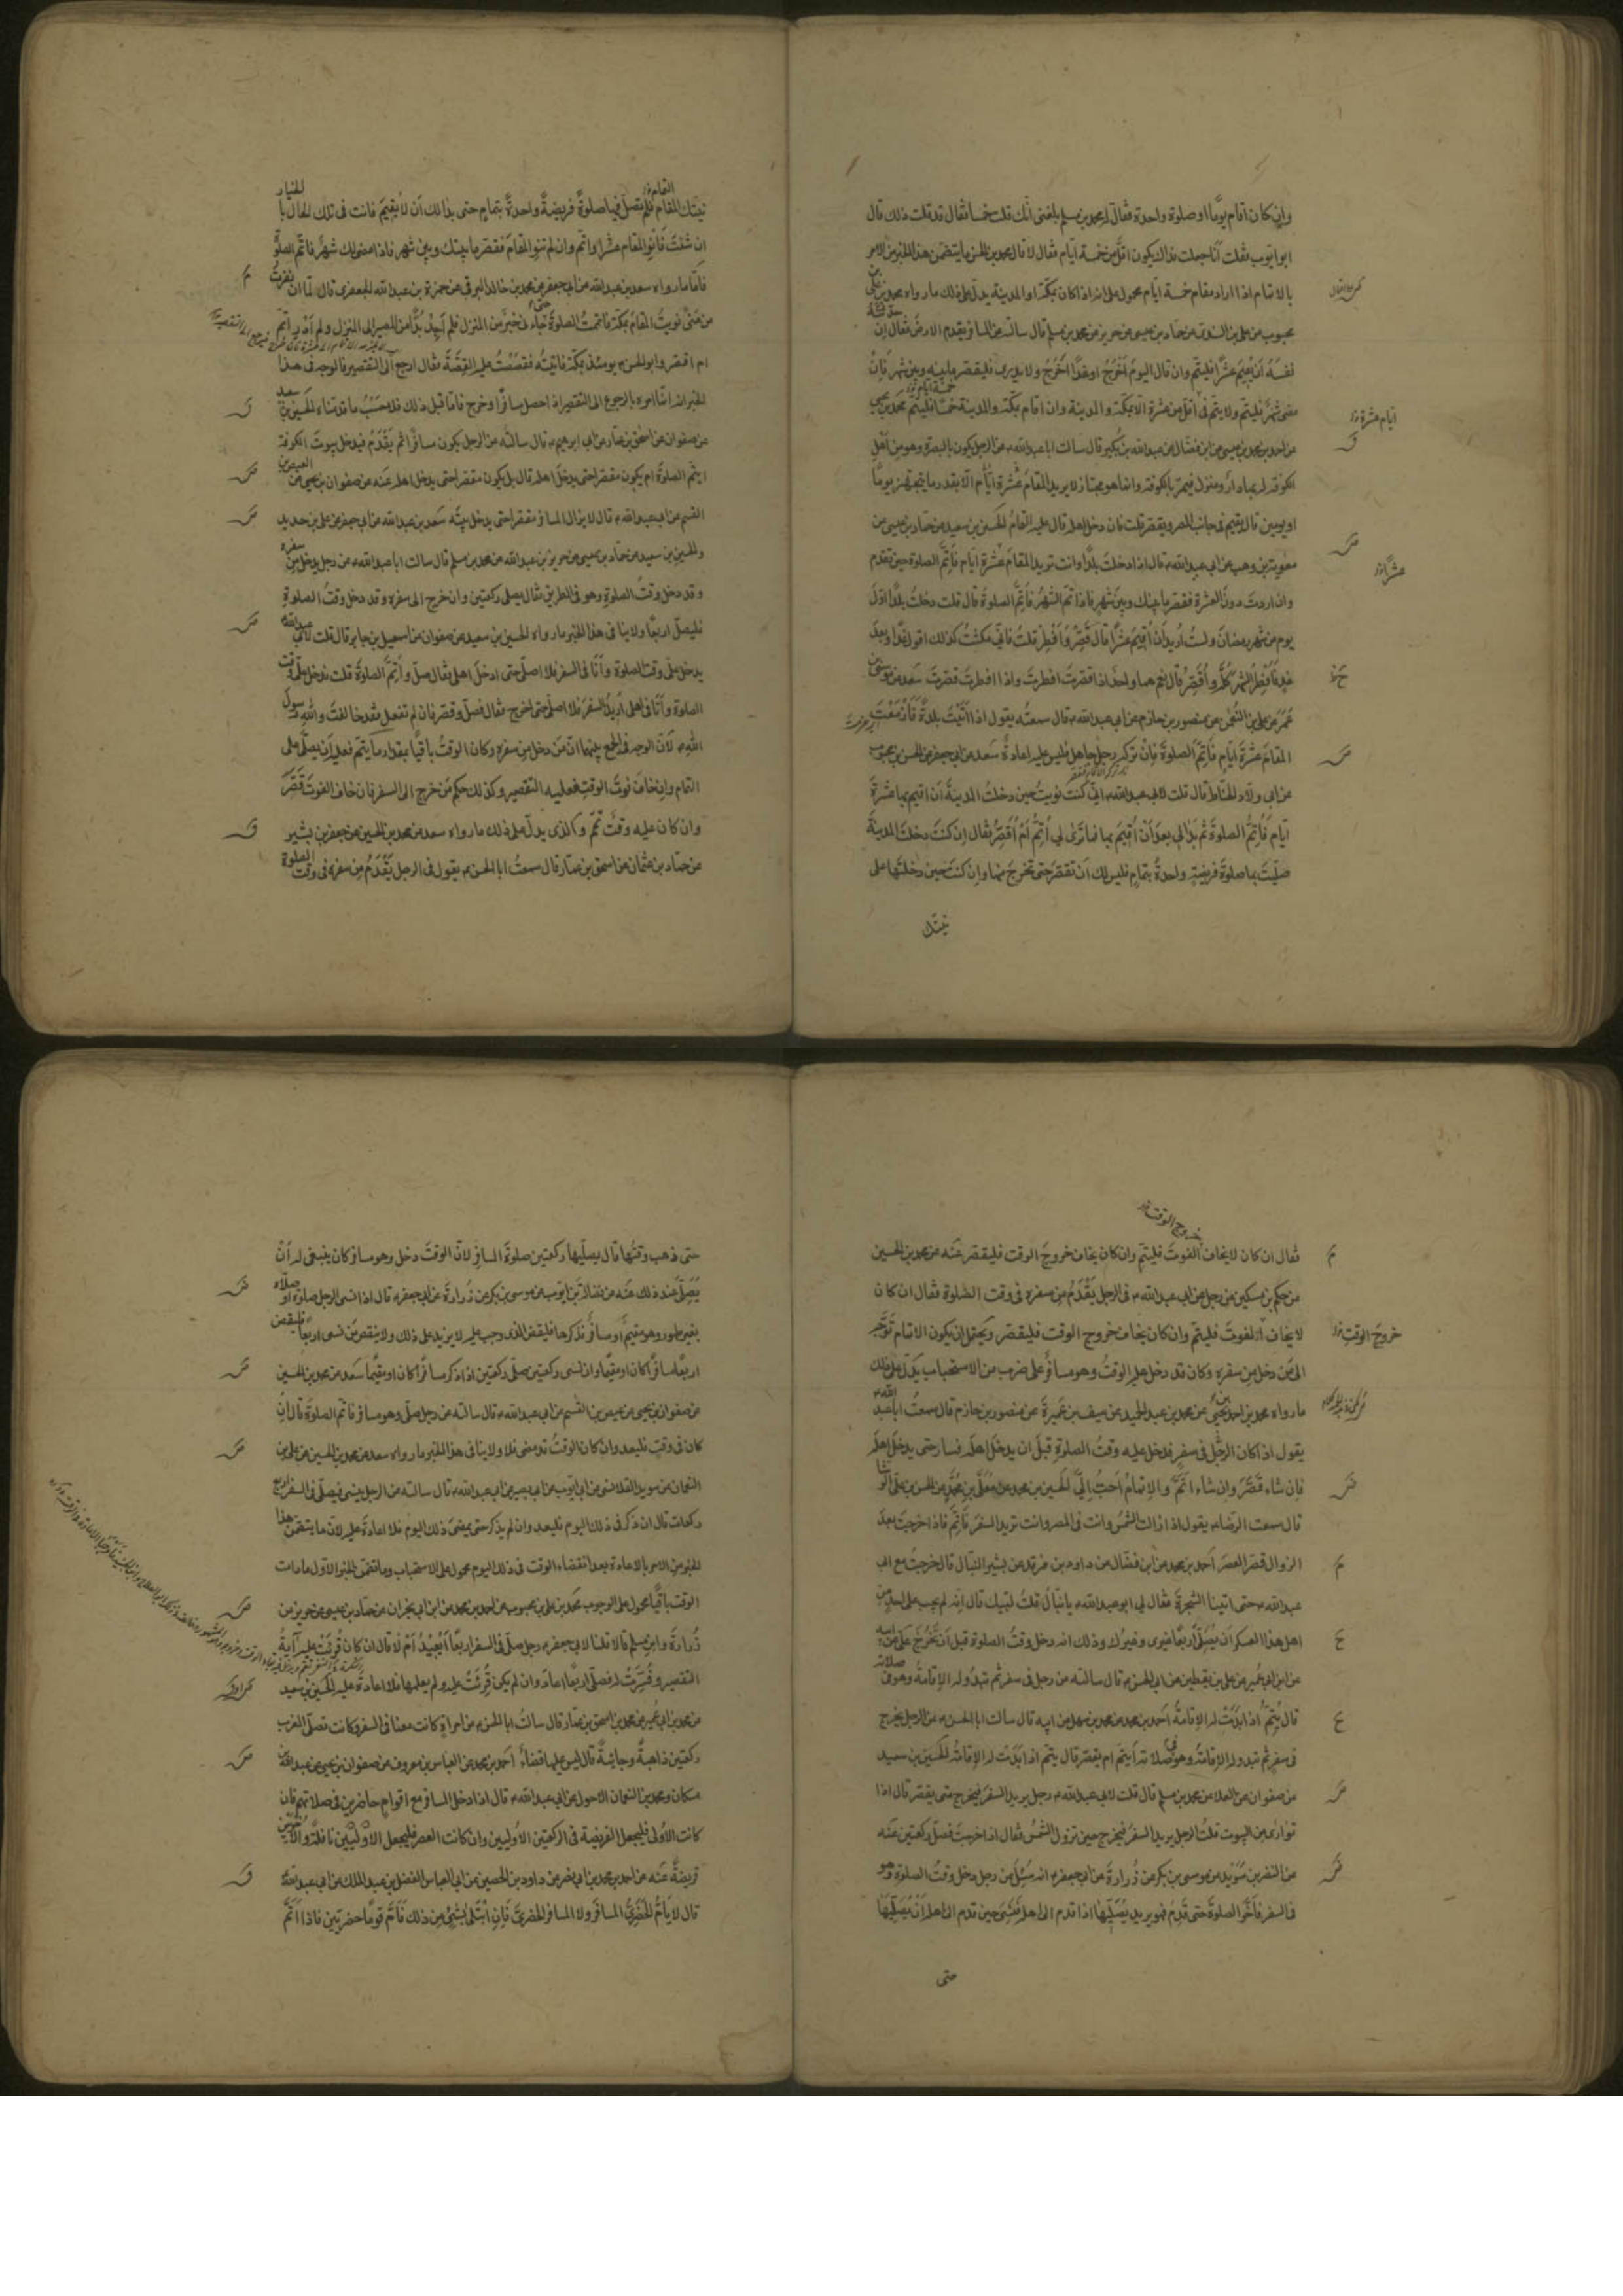 وان كان اقام يومًا او صلوة واحدة فقال له محمد بن مسلم بلغنى انّك قلت خمسا فقال قد قلت ذلك قال
ابو ايوب فقلت انا جعلت فداك يكون اقلّ من خمسة ايّام فقال لا قال محمد بن الحسن ما يتضمن هذا الخبر من الامر
بالاتمام اذا اراد مقام خمسة ايام محمول على انه اذا كان بمكّة او المدينة يدلّ على ذلك ما رواه محمد بن على بن
محبوب عن على بن السندى عن حماد بن عيسى عن حريز عن محمد بن مسلم قال سالته عن المسافر يقدم الارض فقال ان حدثته
نفسَهُ اَنْ يُقيمَ عَشْرًا فليتمّ وان قال اليوم اَخْرُجُ او غدًا اَخْرُجُ ولا يدرى فليقصّر ما بينه وبين شهر فَاِنْ
مضى شهرٌ فليتمّ ولا يتمّ فى اقلّ من عشرة الا بمكّة والمدينة وان اقام بمكّة والمدينة خمسًا فليتمّ محمد بن يحيى
عن احمد بن محمد بن عيسى عن ابن فضّال عن عبد الله بن بُكير قال سالت ابا عبد الله ع عن الرجل يكون بالبصرة وهو من اَهْلِ
الكوفة له بها دارٌ ومنزل فيمرّ بالكوفة وانما هو مجتاز لا يريد المقامَ عَشْرَةَ ايّام الا بقدر ما يتجهّز يومًا
او يومين قال يقيم فى جانب المصر ويقصّر قلت فان دخل اهله قال عليه التمامُ الحسين بن سعيد عن حماد بن عيسى عن
معوية بن وهب عن ابى عبد الله ع قال اذا دخلتَ بلدًا وانت تريد المقامَ عَشْرَةَ ايّام فَاَتِمَّ الصلوة حين تقدم
وان اردتَ دونَ العشرة فقصّر ما بينك وبين شهر فاذا تمّ الشهرُ فاَتِمَّ الصلوةَ قال قلت دخلتُ بلدًا اوّلَ
يوم من شهر رمضانَ ولستُ اُريد اَنْ اُقيمَ عَشْرًا قال قَصِّرْ وَاَفْطِرْ قلتُ فانّى مكثتُ كذلك اقول غدًا او بعدَ
غدٍ فَاُفْطِرُ الشهرَ كُلَّه واُقَصِّرُ قال نعم هما واحدٌ اذا قصّرتَ افطرتَ واذا افطرتَ قصّرتَ سعد عن موسى بن
عُمَرَ عن على بن النُّعمن عن منصور بن حازم عن ابى عبد الله ع قال سمعتُه يقول اذا اَتَيْتَ بلدةً فَاَزْمَعْتَ
المقامَ عَشْرَةَ ايّامٍ فَاَتِمَّ الصلوةَ فَاِنْ تركه رجلٌ جاهل فليس عليه اعادةٌ سعد عن ابى جعفر عن الحسن بن محبوب
عن ابى ولّاد الحنّاط قال قلت لابى عبد الله ع انّى كنت نويتُ حين دخلتُ المدينةَ اَنْ اقيم بها عشرةَ
ايّام فَاُتِمَّ الصلوةَ ثم بَدَا لى بعدُ اَنْ لا اُقيمَ بها فما ترى لى اُتِمُّ اَمْ اُقَصِّرُ فقال اِن كنتَ دخلتَ المدينةَ
صلّيتَ بها صلوةَ فريضةٍ واحدةً بتمامٍ فليس لك اَن تقصّر حتى تخرج منها وان كنتَ حين دخلتَها على
نيتك
نيّتك المقام فلم تصلّ فيها صلوةً فريضةً واحدةً بتمامٍ حتى بدا لك اَن لا تُقيمَ فانت فى تلك الحال بالخيار
ان شئتَ فَانْوِ المقام عشرًا واتمّ وان لم تنوِ المقامَ فقصّر ما بينك وبين شهر فاذا مضى لك شهرٌ فاتمّ الصلوة
فامّا ما رواه سعد بن عبد الله عن ابى جعفر عن محمد بن خالد البرقى عن حمزة بن عبد الله الجعفرى قال لمّا ان نفرتُ
من مِنًى نويتُ المقامَ بمكّة فاتممتُ الصلوةَ حتى جاءنى خبرٌ من المنزل فلم اَجِدْ بُدًّا من المصير الى المنزل ولم اَدْرِ اُتِمُّ
ام اقصر وابو الحسن ع يومئذ بمكّة فاتيتُه فقصصتُ عليه القِصَّةَ فقال ارجع الى التقصير فالوجه فى هذا
الخبر انه انّما امره بالرجوع الى التقصير اذا حصل مسافرًا وخرج فامّا قبل ذلك فلا حَسَبُ ما قدّمناه الحسين بن سعيد
عن صفوان عن اسحق بن عمار عن ابى ابرهيم ع قال سالتُه عن الرجل يكون مسافرًا ثم يَقْدَمُ فيدخل بيوتَ الكوفة
ايتمّ الصلوةَ ام يكون مقصّرًا حتى يدخلَ اهله قال بل يكون مقصّرًا حتى يدخل اهله عنه عن صفوان بن يحيى عن العيص بن
القسم عن ابى عبد الله ع قال لا يزال المسافر مقصّرا حتى يدخل بيتَه سعد بن عبد الله عن ابى جعفر عن على بن حديد
والحسين بن سعيد عن حمّاد بن عيسى عن حريز بن عبد الله عن محمد بن مسلم قال سالت ابا عبد الله ع عن رجل يدخل من سفره
وقد دخل وقتُ الصلوةِ وهو فى الطريق فقال يصلى ركعتين وان خرج الى سفره وقد دخل وقتُ الصلوةِ
فليصلّ اربعًا ولا ينافى هذا الخبر ما رواه الحسين بن سعيد عن صفوان عن اسمعيل بن جابر قال قلت لابى عبد الله ع
يدخل علىّ وقت الصلوة وأنا فى السفر فلا اصلّى حتى ادخل اهلى فقال صلّ واَتِمَّ الصلوةَ قلت فدخل علىّ وقت
الصلوة وأنا فى اهلى اُريدُ السفرَ فلا اصلّى حتى اخرج فقال فصلّ وقصّر فان لم تفعل فقد خالفتَ واللهِ رسولَ
اللهِ ص لانّ الوجه فى الجمع بينهما انّ مَن دخل من سفره وكان الوقتُ باقيًا بمقدار ما يتمّ فعليه اَن يصلّى على
التمام وان خافَ فوتَ الوقتِ فعليه التقصير وكذلك حكم مَن خرج الى السفر فان خاف الفوتَ قَصَّرَ
وان كان عليه وقتٌ تمّم والذى يدلّ على ذلك ما رواه سعد عن محمد بن الحسين عن جعفر بن بشير
عن حمّاد بن عثمان عن اسحق بن عمّار قال سمعتُ ابا الحسن ع يقول فى الرجل يَقْدَمُ من سفره فى وقت الصلوة
خروج الوقت
فقال ان كان لا يخاف الفوتَ فليتمّ وان كان يخاف خروجَ الوقت فليقصّر عَنْه عن محمد بن الحسين
عن حكم بن مسكين عن رجل عن ابى عبد الله ع فى الرجل يَقْدَمُ من سفره فى وقت الصّلوة فقال ان كان
لا يخاف الفوتَ فليتمّ وان كان يخاف خروج الوقت فليقصّر ويَحْتَمِلُ ان يكون الاتمام توجّه
الى مَن دخل من سفره وكان قد دخل عليه الوقتُ وهو مسافرٌ على ضرب من الاستحباب يَدُلّ على ذلك
ما رواه محمد بن احمد بن يحيى عن محمد بن عبد الحميد عن سيف بن عَميرةَ عن منصور بن حازم قال سمعتُ ابا عبد الله ع
يقول اذا كان الرجُل فى سفرٍ فدخل عليه وقتُ الصلوةِ قبلَ ان يدخلَ اهلَه فسار حتى يدخلَ اهلَه
فان شاء قَصَّرَ وان شاء اَتَمَّ والاتمامُ اَحَبُّ اِلىَّ الحسين بن محمد عن مُعَلَّى بن مُحَمَّدٍ عن الحسن بن على الوشّا
قال سمعت الرضا ع يقول اذا زالت الشمسُ وانت فى المصر وانت تريد السفرَ فاَتِمَّ فاذا خرجتَ بعد
الزوال قصّر العصرَ احمد بن محمد عن ابن فضّال عن داود بن فرقد عن بشير النبّال قال خرجتُ مع ابى
عبد الله ع حتى اتينا الشجرةَ فقال لى ابو عبد الله ع يا نبّالُ قلتُ لبّيك قال انّه لم يجب على احدٍ من
اهل هذا العسكر اَن يُصَلّىَ اربعًا غيرى وغيرُك وذلك انه دخل وقتُ الصلوة قبل اَنْ نَخْرُجَ
عن ابن ابى عُمير عن على بن يقطين عن ابى الحسن ع قال سالته عن رجل فى سفر ثم تبدُو له الاقامةُ وهو فى صلاته
قال يُتِمُّ اذا بَدَتْ له الاِقامةُ احمد بن محمد عن محمد بن سهل عن ابيه قال سالت ابا الحسن ع عن الرجل يخرج
فى سفر ثم تبدو له الاقامةُ وهو فى صلاته اَيُتِمّ ام يقصّر قال يتمّ اذا بَدَتْ له الاقامةُ الحسين بن سعيد
عن صفوان عن العلا عن محمد بن مسلم قال قلت لابى عبد الله ع رجل يريد السفرَ فيخرج متى يقصّر قال اذا
توارى من البيوت قلت الرجل يريد السفرَ فيخرج حين تزول الشمسُ فقال اذا خرجتَ فصلّ ركعتين عنه
عن النضر بن سُوَيد عن موسى بن بكر عن زُرارةَ عن ابى جعفر ع انه سُئِلَ عن رجل دخل وقتُ الصلوة وهو
فى السفر فأخّر الصلوةَ حتى قَدِمَ فهو يريد يُصَلّيها اذا قدم الى اهله فنَسِىَ حين قدم الى اهله اَنْ يُصَلّيَها
حتى
حتى ذهب وقتُها قال يصلّيها ركعتين صلوةَ المسافر لانّ الوقتَ دخل وهو مسافر كان ينبغى له اَنْ
يُصَلّىَ عند ذلك عَنْه عن فضالةَ بن ايّوب عن موسى بن بكر عن زُرارةَ عن ابى جعفر ع قال اذا نسى الرجل صلوة او صلّاها
بغير طهور وهو مقيمٌ او مسافرٌ فذكرها فليقض الذى وجب عليه لا يزيد على ذلك ولا ينقص مَن نسى اربعًا فليقض
اربعًا مسافرًا كان او مقيمًا وان نسى ركعتين صلّى ركعتين اذا ذكر مسافرًا كان او مقيمًا سعد عن محمد بن الحسين
عن صفوان بن يحيى عن عيص بن القسم عن ابى عبد الله ع قال سالته عن رجل صلّى وهو مسافر فاتمّ الصلوة قال ان
كان فى وقت فليعد وان كان الوقتُ قد مضى فلا ولا ينافى هذا الخبر ما رواه سعد عن محمد بن الحسين عن على بن
النعمان عن سويد القلانسى عن ابى ايّوب عن ابى بصير عن ابى عبد الله ع قال سالته عن الرجل ينسى فيصلّى فى السفر اربع
ركعات قال ان ذكر فى ذلك اليوم فليعد وان لم يذكر حتى يمضىَ ذلك اليوم فلا اعادةَ عليه لانّ ما يتضمن هذا
الخبر من الامر بالاعادة بعد انقضاء الوقت فى ذلك اليوم محمول على الاستحباب وما تضمّن الخبر الاول ما دامت
الوقت باقيًا محمول على الوجوب محمد بن على بن محبوب عن احمد بن محمد عن ابن ابى نجران عن حمّاد بن عيسى عن حريز عن
زُرارةَ وابن مسلم قالا قلنا لابى جعفر ع رجل صلّى فى السفر اربعًا اَيُعيدُ اَمْ لا قال ان كان قُرِئَتْ عليه آيةُ
التقصير وفُسِّرَتْ له فصلّى اربعًا اعاد وان لم يكن قُرِئَتْ عليه ولم يعلمها فلا اعادةَ عليه الحسين بن سعيد
عن محمد بن ابى عُمير عن محمد بن اسحق بن عمّار قال سالتُ ابا الحسن ع عن امراةٍ كانت معنا فى السفر وكانت تصلّى المغرب
ركعتين ذاهبةً وجائيةً قال ليس عليها قضاءٌ احمد بن محمد عن العباس بن معروف عن صفوان بن يحيى عن عبد الله بن
مسكان ومحمد بن النعمان الاحول عن ابى عبد الله ع قال اذا دخل المسافر مع اقوامٍ حاضرين فى صلاتهم فان
كانت الأولى فليجعل الفريضة فى الركعتين الاُوليين وان كانت العصر فليجعل الاُوليين نافلةً والاخيرتين
فريضةً عنه عن احمد بن محمد بن ابى نصر عن داود بن الحصين عن ابى العباس الفضل بن عبد الملك عن ابى عبد الله ع
قال لا يَاُمُّ الحَضَرىُّ المسافرَ ولا المسافر الحضرىَّ فَاِنِ ابتُلىَ بشىء من ذلك فَاَمَّ قومًا حضريّين فاذا اَتَمَّ